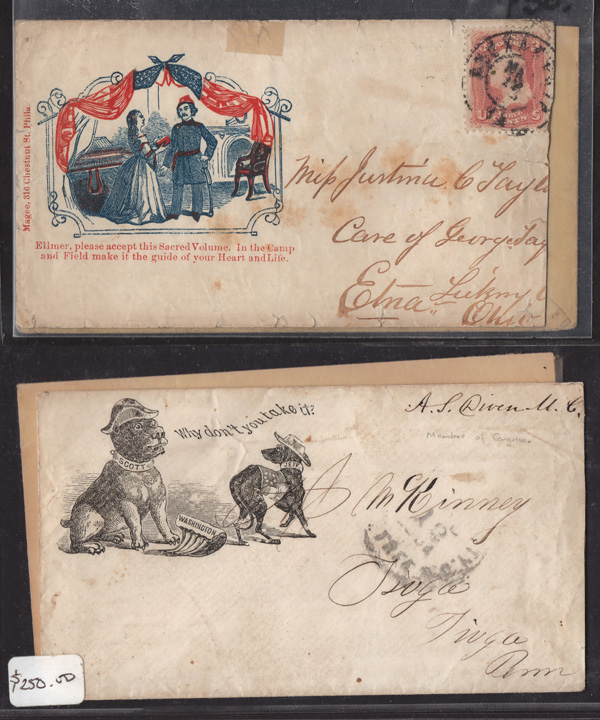 Magee, 316 Chestnut St. Phila.
Ellmer, please accept this Sacred Volume. In the Camp
and Field make it the guide of your Heart and Life.
Miss Justina C Tayl
Care of George Tay
Etna
Ohio
CENTS
A. S. Diven M. C.
Member of Congress.
Why don't you take it?
SCOTT
WASHINGTON
McKinney
Tioga
Tioga
Penn
FREE
$250.00